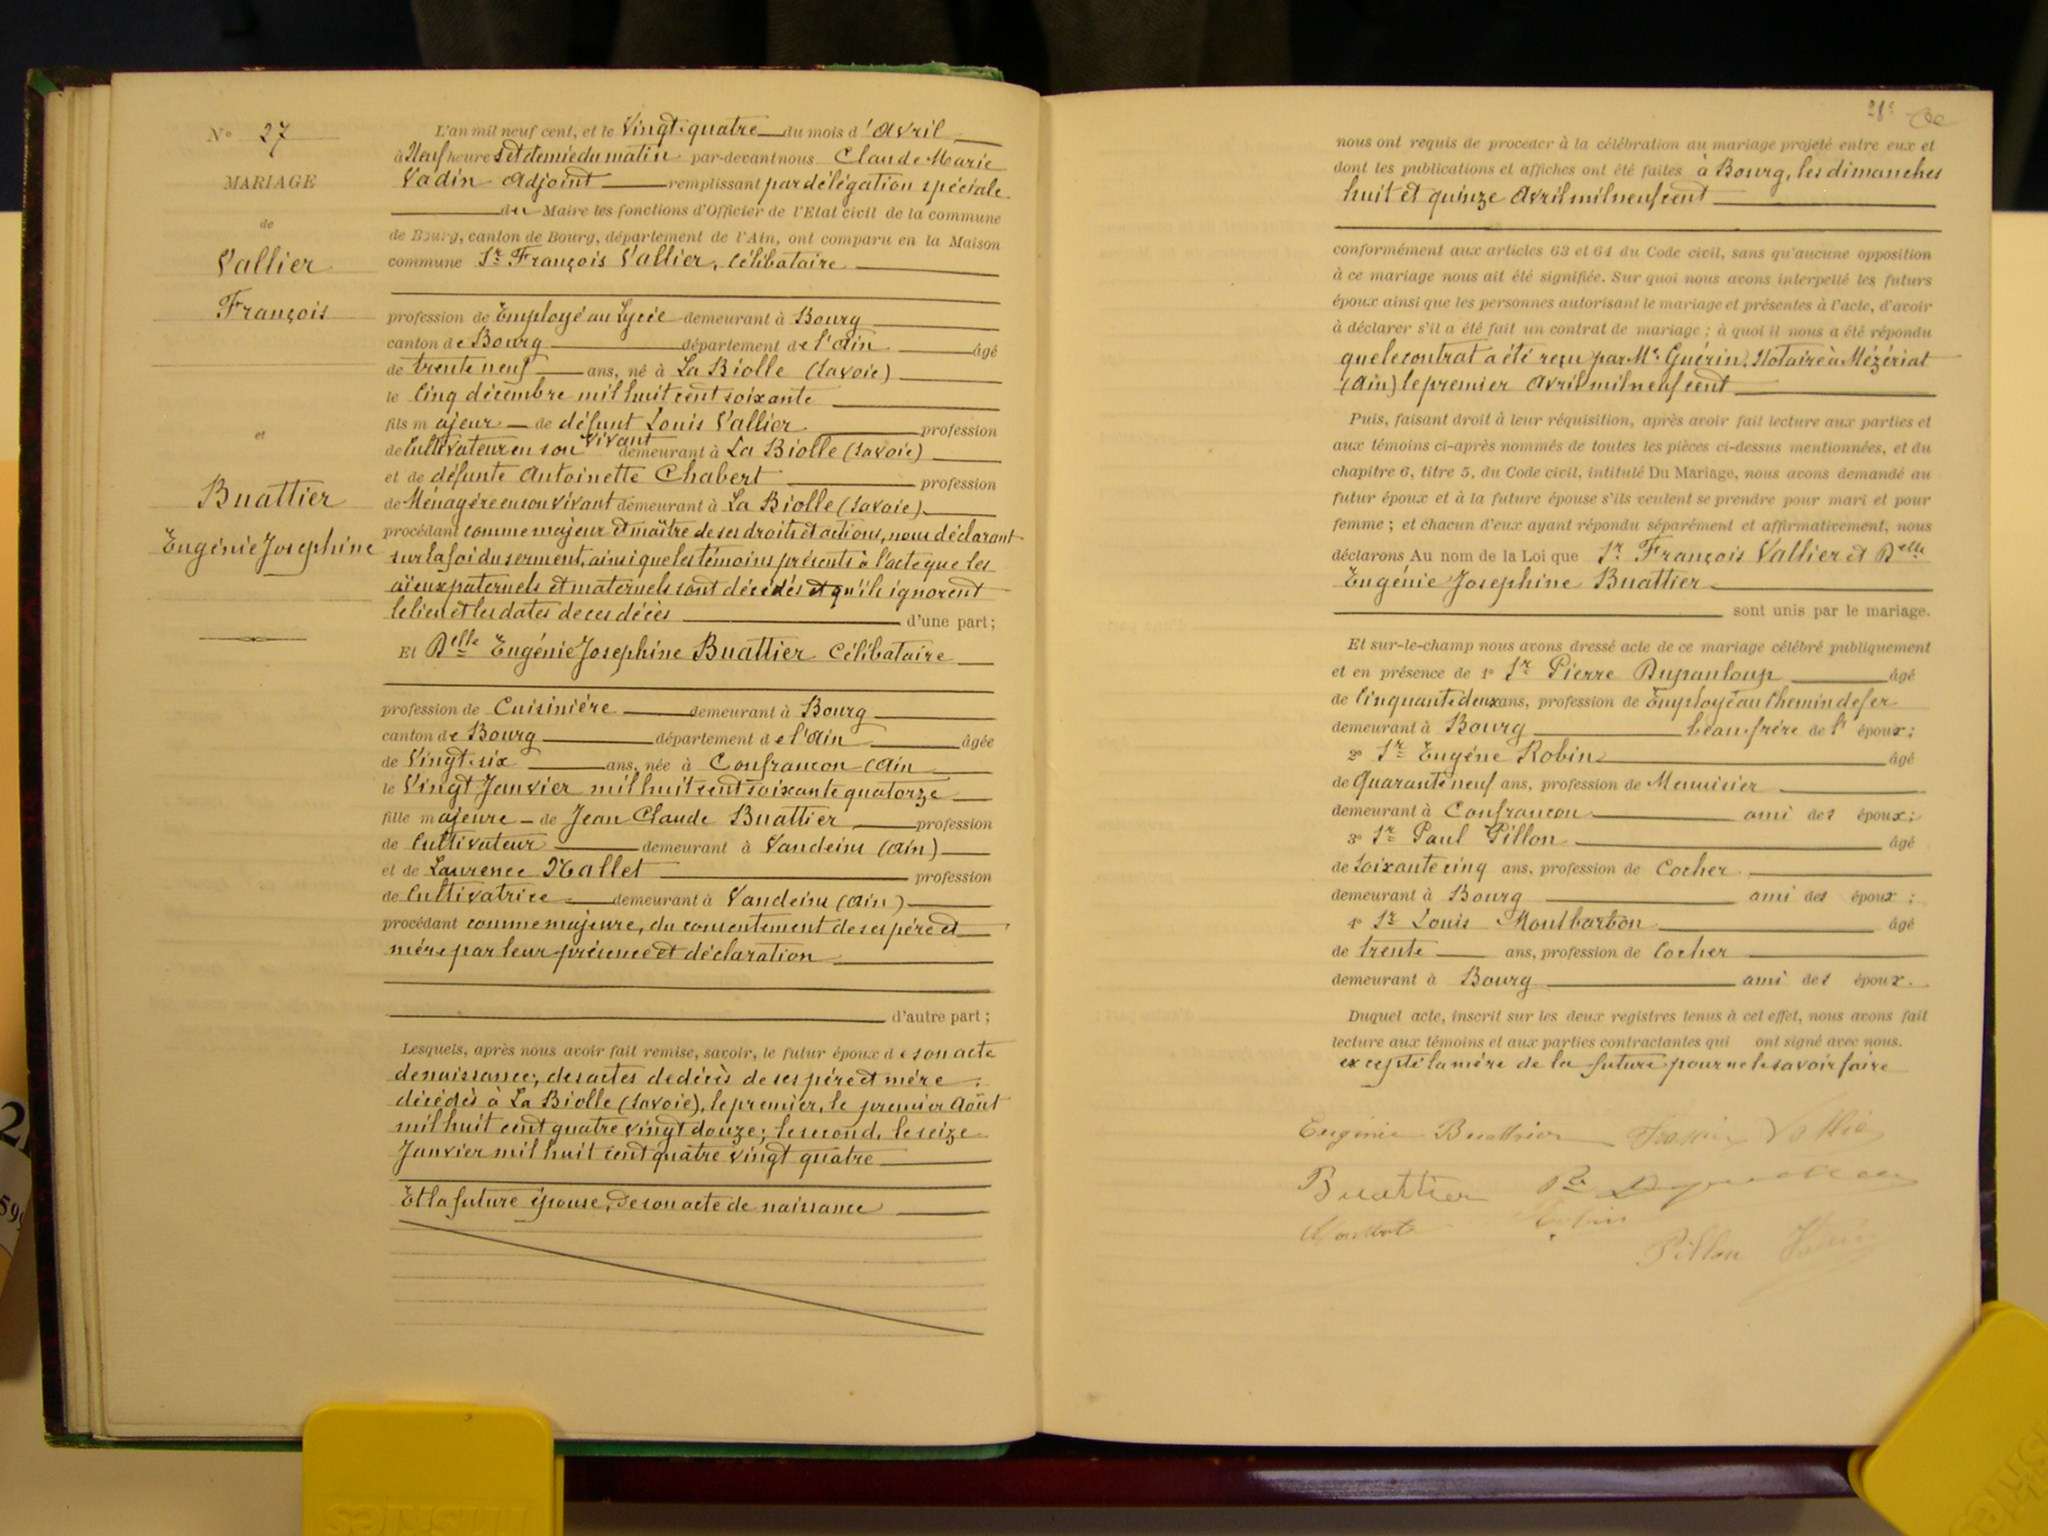 N° 27
MARIAGE
de
Vallier
François
et
Buattier
Eugénie Josephine
L'an mil neuf cent, et le Vingt-quatre du mois d'Avril
à Neuf heures et demie du matin par-devant nous Claude Marie
Vadin Adjoint remplissant par délégation spéciale
du Maire les fonctions d'Officier de l'Etat civil de la commune
de Bourg, canton de Bourg, département de l'Ain, ont comparu en la Maison
commune Sr François Vallier, célibataire
profession de Employé au Lycée demeurant à Bourg
canton de Bourg département de l'Ain âgé
de trente neuf ans, né à La Biolle (Savoie)
le Cinq décembre mil huit cent soixante
fils majeur de défunt Louis Vallier profession
de Cultivateur en son vivant demeurant à La Biolle (Savoie)
et de défunte Antoinette Chabert profession
de Ménagère en son vivant demeurant à La Biolle (Savoie)
procédant comme majeur et maître de ses droits et actions, nous déclarant
sur la foi du serment, ainsi que les témoins présents à l'acte que les
aïeux paternels et maternels sont décédés et qu'ils ignorent
le lieu et les dates de ces décès d'une part;
Et Delle Eugénie Josephine Buattier Célibataire
profession de Cuisinière demeurant à Bourg
canton de Bourg département de l'Ain âgée
de Vingt-six ans, née à Confrancon (Ain
le Vingt Janvier mil huit cent soixante quatorze
fille majeure de Jean Claude Buattier profession
de Cultivateur demeurant à Vandeins (Ain)
et de Laurence Nallet profession
de Cultivatrice demeurant à Vandeins (Ain)
procédant comme majeure, du consentement de ses père et
mère par leur présence et déclaration
d'autre part;
Lesquels, après nous avoir fait remise, savoir, le futur époux de son acte
de naissance; des actes de décès de ses père et mère
décédés à La Biolle (Savoie), le premier, le premier Août
mil huit cent quatre vingt douze; le second, le seize
Janvier mil huit cent quatre vingt quatre
Et la future épouse, de son acte de naissance
28e
nous ont requis de procéder à la célébration du mariage projeté entre eux et
dont les publications et affiches ont été faites à Bourg, les dimanches
huit et quinze Avril mil neuf cent
conformément aux articles 63 et 64 du Code civil, sans qu'aucune opposition
à ce mariage nous ait été signifiée. Sur quoi nous avons interpellé les futurs
époux ainsi que les personnes autorisant le mariage et présentes à l'acte, d'avoir
à déclarer s'il a été fait un contrat de mariage; à quoi il nous a été répondu
que le contrat a été reçu par Me Guérin, Notaire à Mézériat
(Ain) le premier Avril mil neuf cent
Puis, faisant droit à leur réquisition, après avoir fait lecture aux parties et
aux témoins ci-après nommés de toutes les pièces ci-dessus mentionnées, et du
chapitre 6, titre 5, du Code civil, intitulé Du Mariage, nous avons demandé au
futur époux et à la future épouse s'ils veulent se prendre pour mari et pour
femme; et chacun d'eux ayant répondu séparément et affirmativement, nous
déclarons Au nom de la Loi que Sr François Vallier et Delle
Eugénie Josephine Buattier
sont unis par le mariage.
Et sur-le-champ nous avons dressé acte de ce mariage célébré publiquement
et en présence de 1° Sr Pierre Dupanloup âgé
de Cinquante deux ans, profession de Employé au Chemin de fer
demeurant à Bourg beau-frère de l' époux;
2° Sr Eugène Robin âgé
de Quarante neuf ans, profession de Menuisier
demeurant à Confrancon ami des époux;
3° Sr Paul Pillon âgé
de Soixante cinq ans, profession de Cocher
demeurant à Bourg ami des époux;
4° Sr Louis Montbarbon âgé
de trente ans, profession de Cocher
demeurant à Bourg ami des époux.
Duquel acte, inscrit sur les deux registres tenus à cet effet, nous avons fait
lecture aux témoins et aux parties contractantes qui ont signé avec nous.
excepté la mère de la future pour ne le savoir faire
Eugénie Buattier
Buattier
Robin
Pillon